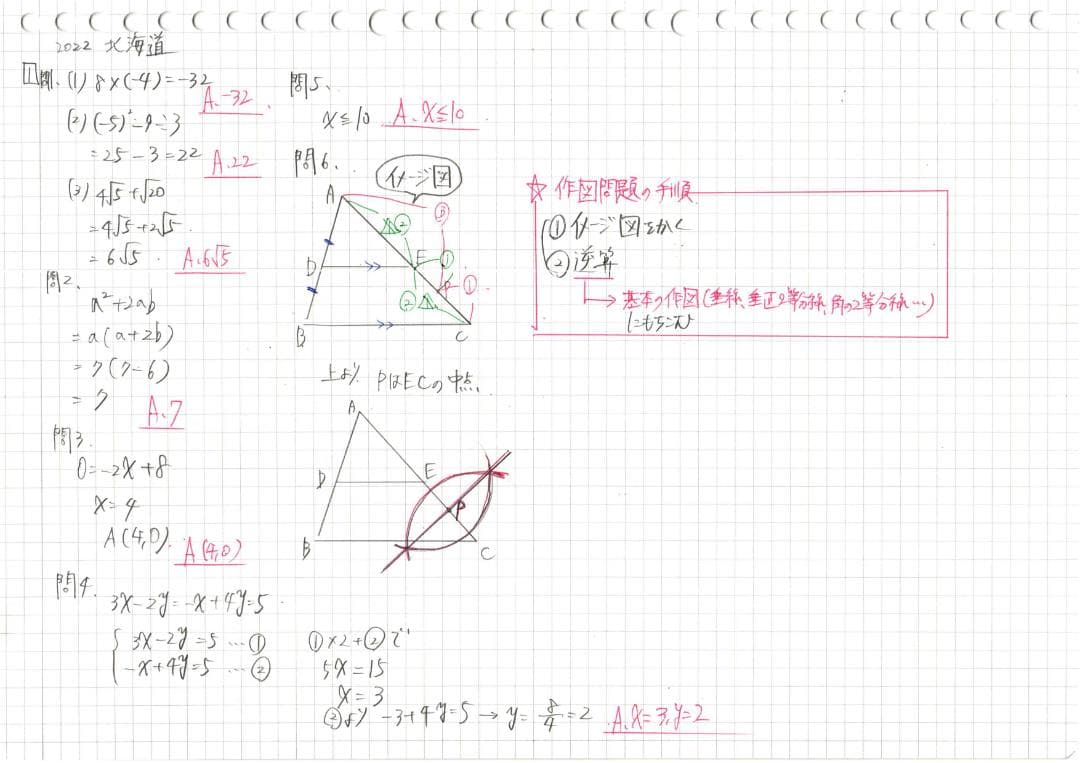 2022 北海道
1 問1、(1) 8×(-4)=-32
A、-32
(2) (-5)²-9÷3
=25-3=22
A.22
(3) 4√5+√20
=4√5+2√5
=6√5
A.6√5
問2、
a²+2ab
=a(a+2b)
=7(7-6)
=7
A、7
問3、
0=-2x+8
x=4
A(4,0)
A(4,0)
問4、
3x-2y=-x+4y=5
3x-2y=5…①
-x+4y=5…②
①×2+②で
5x=15
x=3
②より -3+4y=5→y=8/4=2
A、x=3,y=2
問5、
x≦10
A、x≦10
問6、
イメージ図
A
③
②
D
E
①
P
①
②
B
C
上より PはECの中点
A
D
E
P
B
C
☆ 作図問題の手順
①イメージ図をかく
②逆算
→基本の作図(垂線、垂直2等分線、角の2等分線…)
にもちこむ